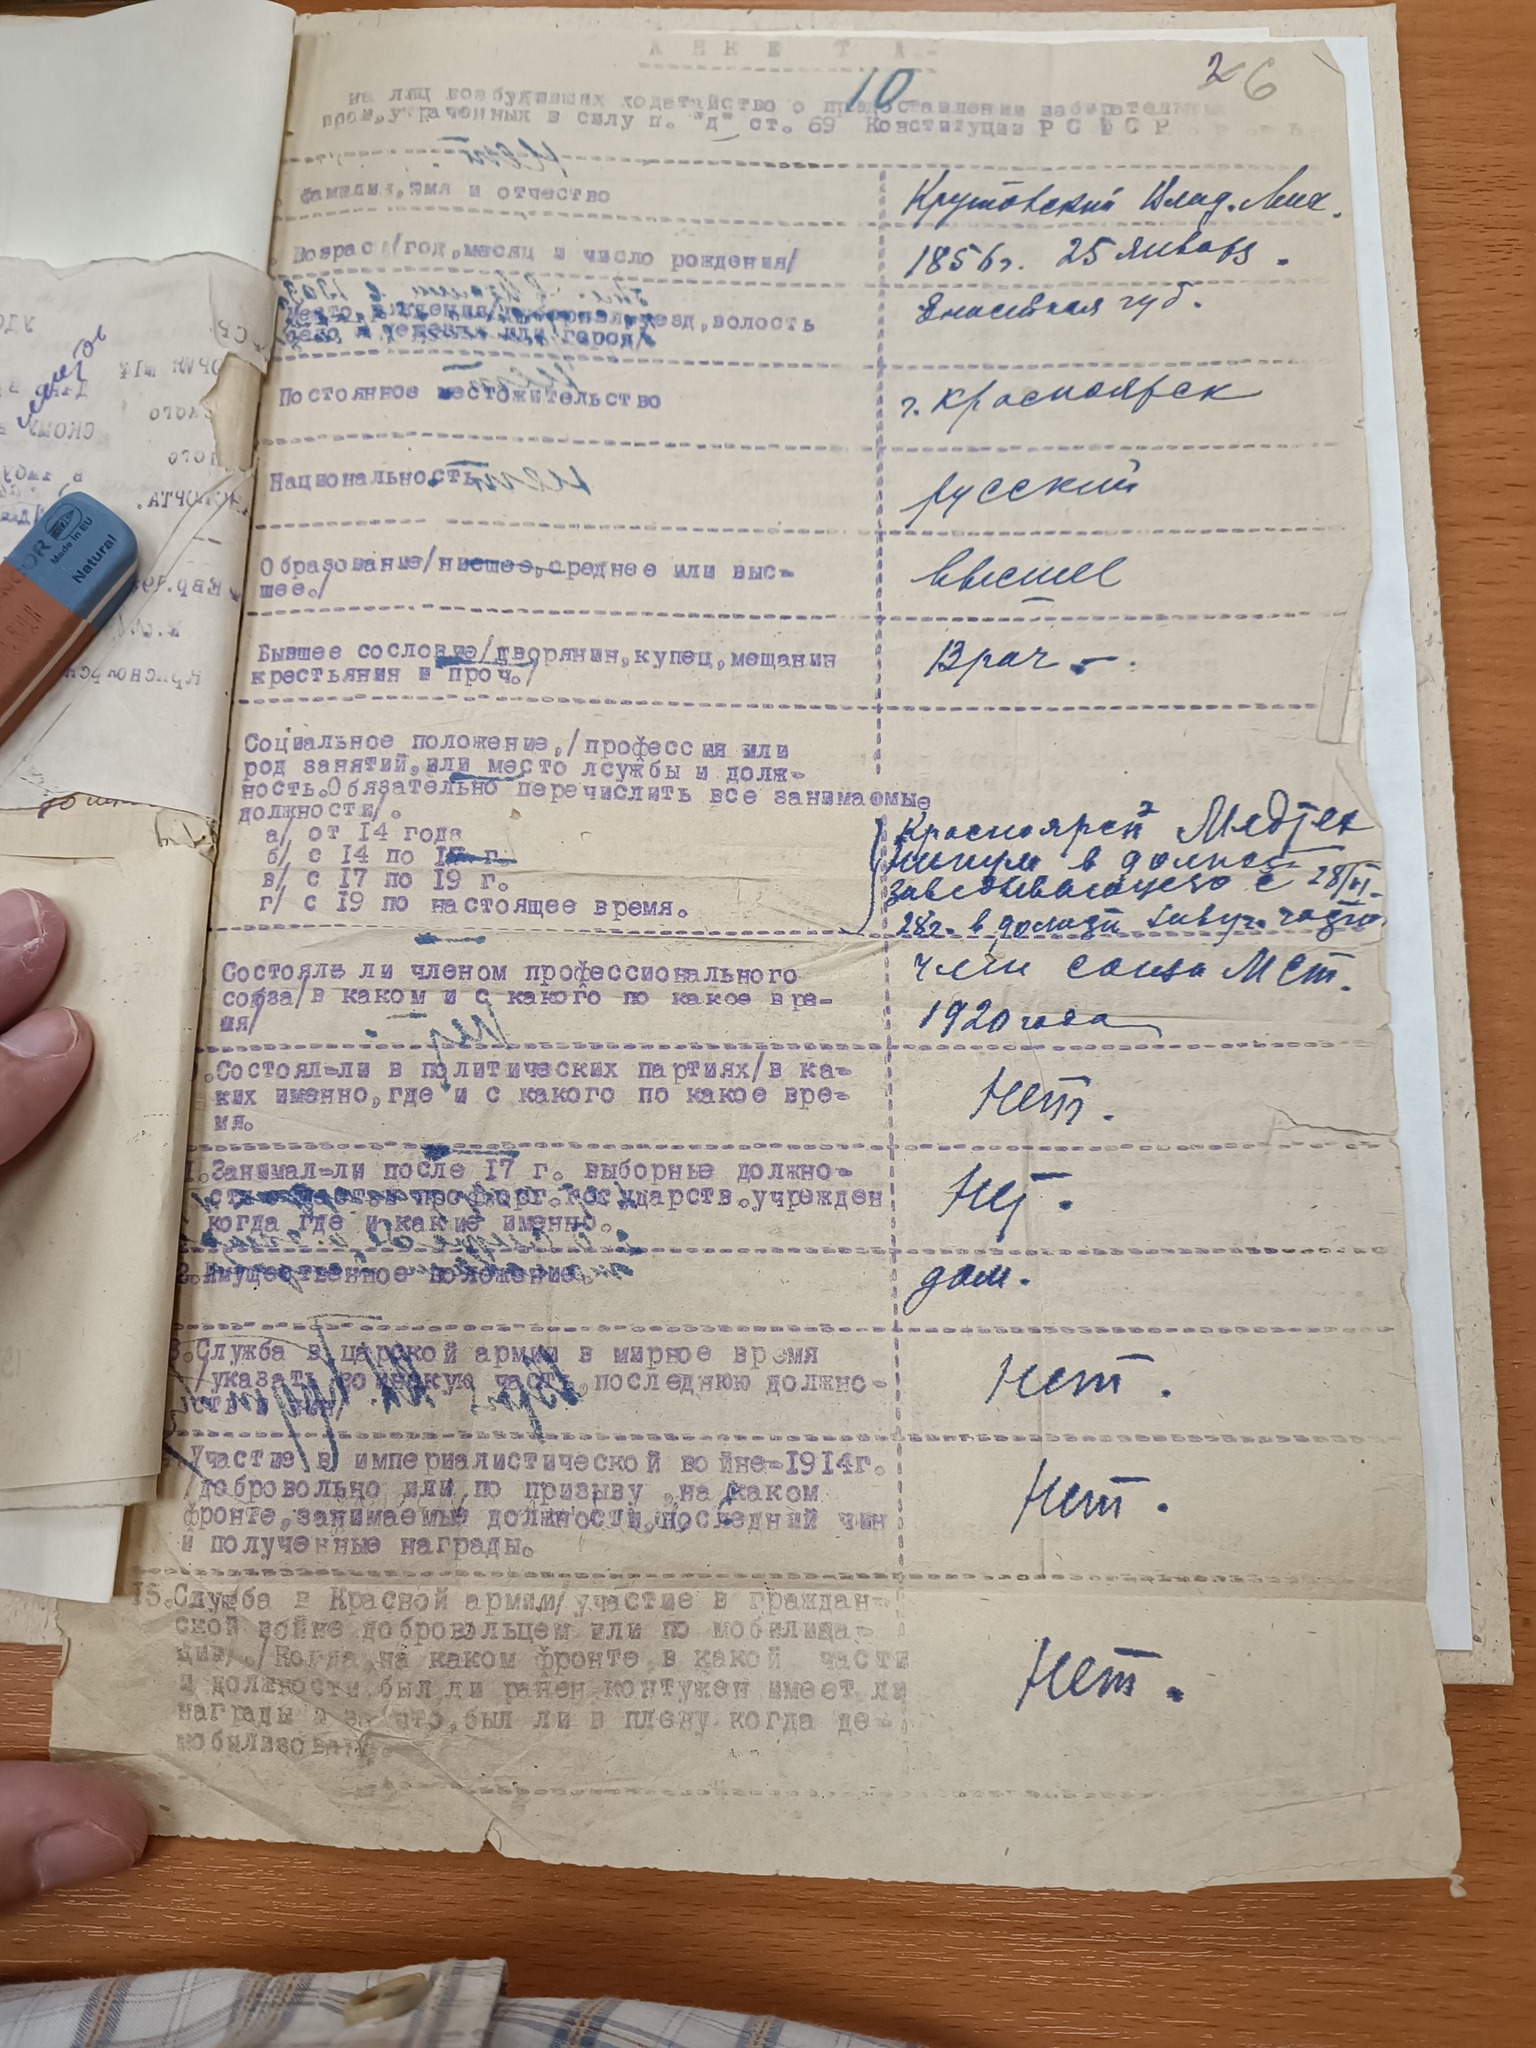 А Н К Е Т А
10
26
на лиц возбудивших ходатайство о предоставлении избирательных
прав, утраченных в силу п. "д" ст. 69 Конституции Р С Ф С Р
фамилия, имя и отчество
Крутовский Влад. Мих.
Возраст/год, месяц и число рождения/
1856 г. 25 января.
место рождения уезд, волость
село и деревня или город/
Енисейская губ.
Постоянное местожительство
г. Красноярск
Национальность
русский
Образование/низшее, среднее или выс-
шее./
высшее
Бывшее сословие/дворянин, купец, мещанин
крестьянин и проч./
Врач
Социальное положение,/профессия или
род занятий, или место лсужбы и долж-
ность. Обязательно перечислить все занимаемые
должности/.
а/ от 14 года
б/ с 14 по 17 г.
в/ с 17 по 19 г.
г/ с 19 по настоящее время.
Красноярск Медтех
никум в должн
заведывающего с 28/VI-
28 г. в должн
Состоял ли членом профессионального
союза/в каком и с какого по какое вре-
мя/
член союза Мст.
1920 года
.Состоял-ли в политических партиях/в ка-
ких именно, где и с какого по какое вре-
мя.
Нет.
1.Занимал-ли после 17 г. выборные должно-
сти профорг. государств. учрежден
когда где и какие именно.
Нет.
2.Имущественное положение.
дом.
3.Служба в царской армии в мирное время
/указать воинскую часть, последнюю должно-
сть и чин/
Нет.
Участие в империалистической войне-1914г.
/добровольно или по призыву, на каком
фронте, занимаемые должности, последний чин
и полученные награды.
Нет.
15.Служба в Красной армии/участие в граждан-
ской войне добровольцем или по мобилиза-
ции./Когда, на каком фронте, в какой части
и должности, был ли ранен, контужен имеет ли
награды и за что, был ли в плену когда де-
мобилизован.
Нет.
Made in EU
Natural